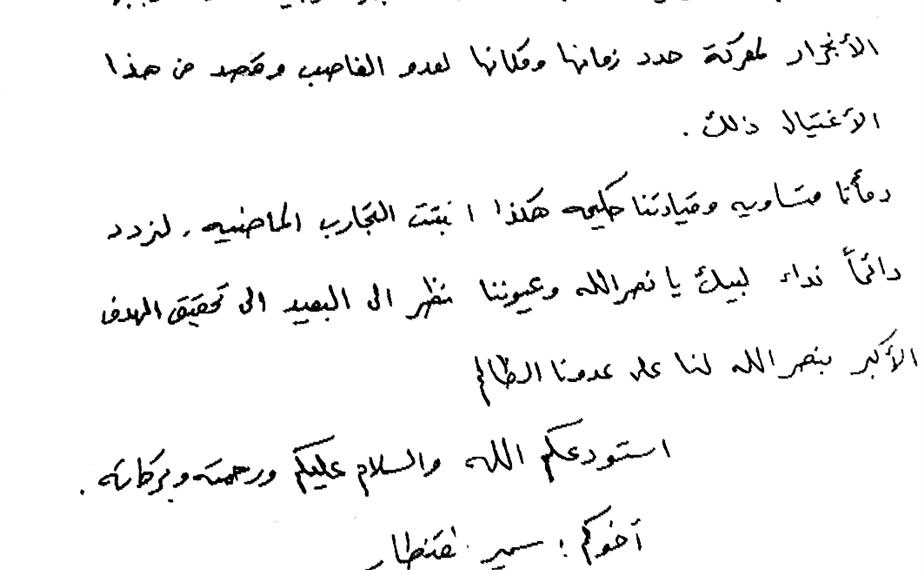 الأنجرار لمعركة حدد زمانها ومكانها لعدو الغاصب وقصد من هذا
الأغتيال ذلك .
دمأنا متساويه وقيادتنا حكيمه هكذا اثبتت التجارب الماضيه , لنردد
دائماً نداء لبيك يا نصرالله وعيوننا تنظر الى البعيد الى تحقيق الهدف
الأكبر بنصر الله لنا على عدونا الظالم
استودعكم الله والسلام عليكم ورحمته وبركاته .
أخوكم : سمير قنطار